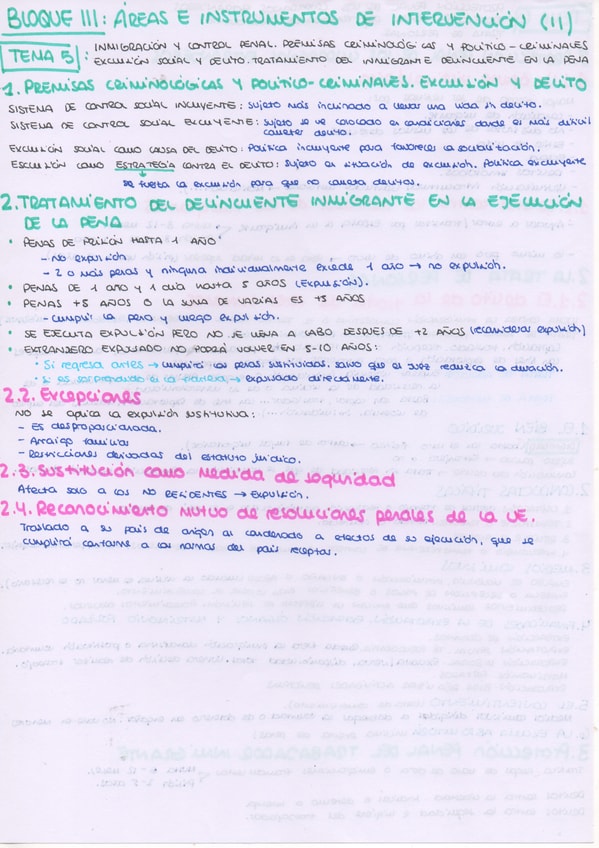 BLOQUE III: ÁREAS E INSTRUMENTOS DE INTERVENCIÓN (II)
TEMA 5: INMIGRACIÓN Y CONTROL PENAL. PREMISAS CRIMINOLÓGICAS Y POLÍTICO-CRIMINALES
EXCLUSIÓN SOCIAL Y DELITO. TRATAMIENTO DEL INMIGRANTE DELINCUENTE EN LA PENA
1. PREMISAS CRIMINOLÓGICAS Y POLÍTICO-CRIMINALES. EXCLUSIÓN Y DELITO
SISTEMA DE CONTROL SOCIAL INCLUYENTE: Sujeto más inclinado a llevar una vida sin delito.
SISTEMA DE CONTROL SOCIAL EXCLUYENTE: Sujeto se ve colocado en condiciones donde es más difícil
cometer delito.
EXCLUSIÓN SOCIAL COMO CAUSA DEL DELITO: Política incluyente para favorecer la socialización.
EXCLUSIÓN COMO ESTRATEGIA CONTRA EL DELITO: Sujeto en situación de exclusión. Política excluyente
se fuerza la exclusión para que no cometa delitos.
2. TRATAMIENTO DEL DELINCUENTE INMIGRANTE EN LA EJECUCIÓN
DE LA PENA
• PENAS DE PRISIÓN HASTA 1 AÑO
- No expulsión
- 2 o más penas y ninguna individualmente excede 1 año → no expulsión.
• PENAS DE 1 AÑO Y 1 DÍA HASTA 5 AÑOS (Expulsión).
• PENAS +5 AÑOS O LA SUMA DE VARIAS ES +5 AÑOS
- Cumplir la pena y luego expulsión.
• SE EJECUTA EXPULSIÓN PERO NO SE LLEVA A CABO DESPUES DE +2 AÑOS (reconsiderar expulsión)
• EXTRANJERO EXPULSADO NO PODRÁ VOLVER EN 5-10 AÑOS:
• Si regresa antes → cumplirá las penas sustituidas, salvo que el juez reduzca la duración.
• Si es sorprendido en la frontera → expulsado directamente.
2.2. Excepciones
NO se aplica la expulsión sustitutiva:
- Es desproporcionada.
- Arraigo familiar
- Restricciones derivadas del estatuto jurídico.
2.3. Sustitución como medida de seguridad
Afecta solo a los NO RESIDENTES → Expulsión.
2.4. Reconocimiento mutuo de resoluciones penales de la UE.
Traslado a su país de origen al condenado a efectos de su ejecución, que se
cumplirá conforme a las normas del país receptor.